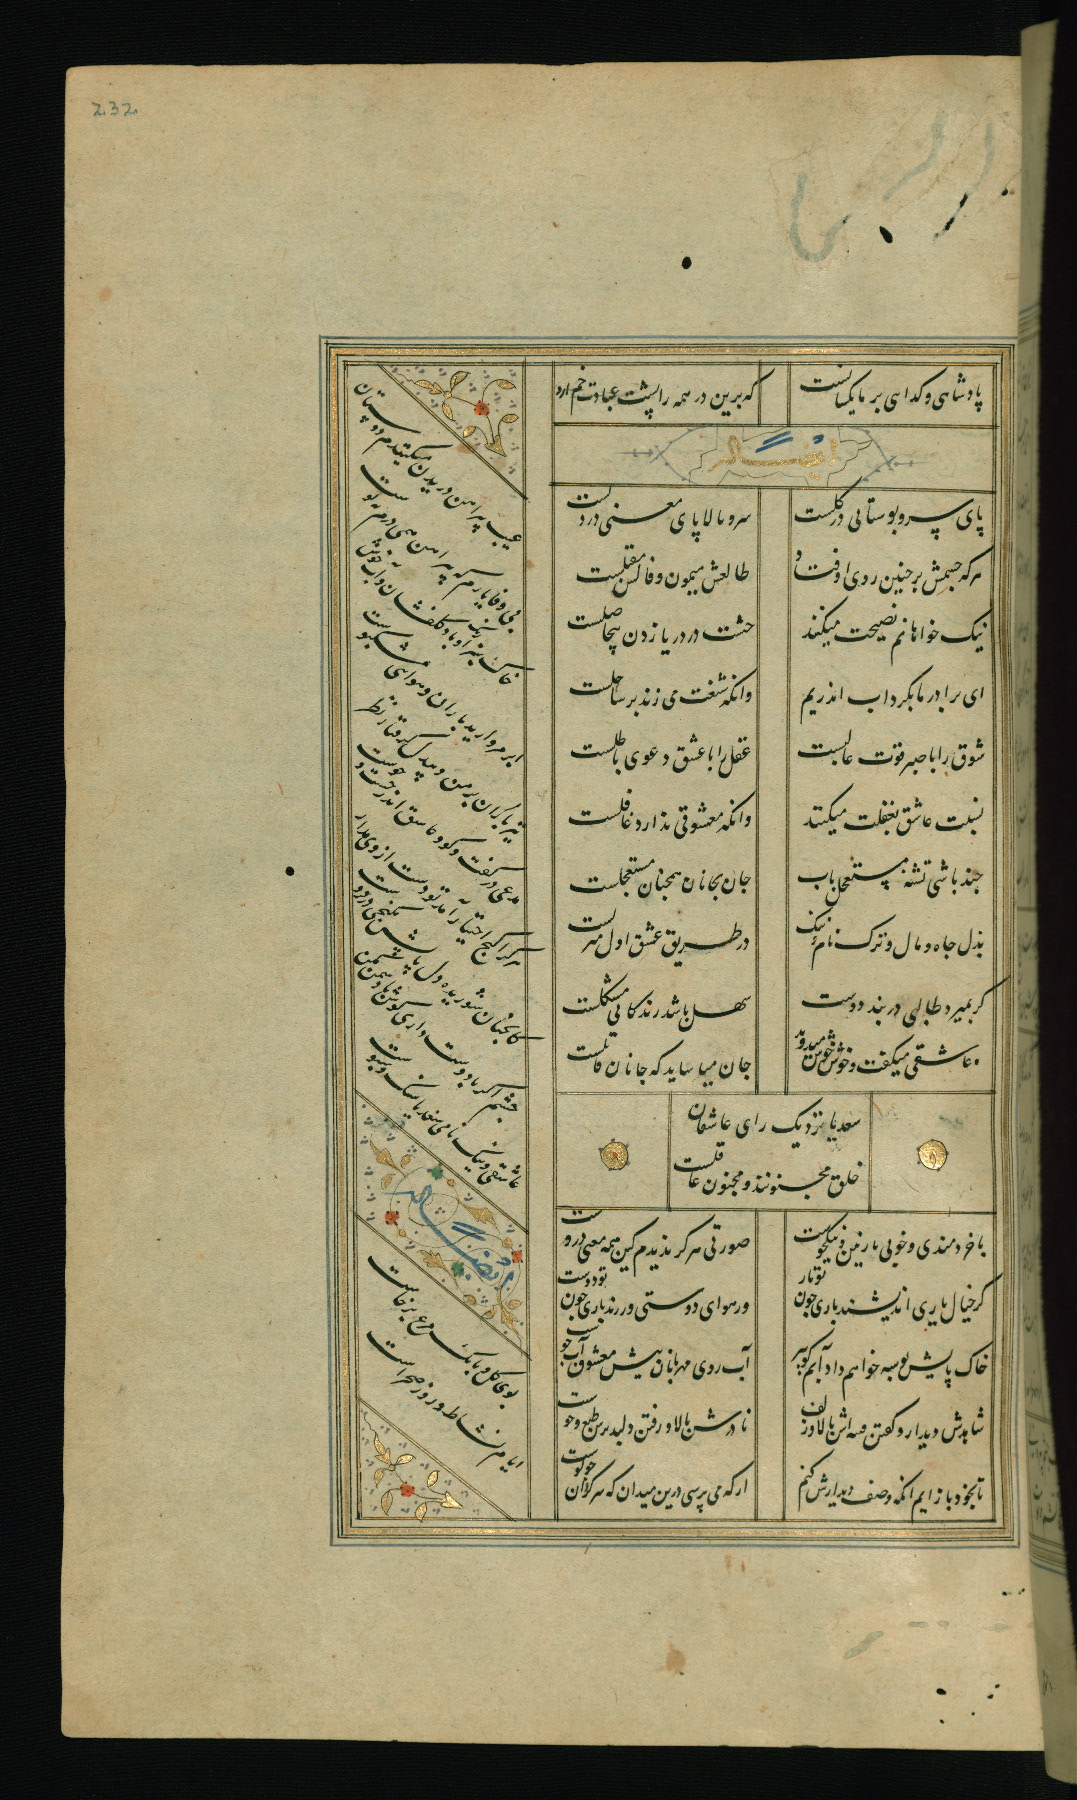 232
پادشاهی و کدایی بر ما یکسانست
که برین در همه را پشت عبادت خم ازد
ایضاً له
پای سرو بوستانی در کلست
سرو ما لا پای معنی در دلست
هرکه چشمش بر چنین روی اوفتد
طالعش میمون و فالش مقبلست
نیک خواهانم نصیحت میکنند
خشت در دریا زدن بیحاصلست
ای برادر ما بکرداب اندریم
وانکه شنعت می زند بر ساحلست
شوق را با صبر قوت غالبست
عقل را با عشق دعوی باطلست
نسبت عاشق بغفلت میکنند
وانکه معشوقی ندارد غافلست
چند باشی تشنه مستعجل باب
جان بجانان همچنان مستعجلست
بذل جاه و مال و ترک نام و ننک
در طریق عشق اول منزلست
کر بمیرد طالبی در بند دوست
سهل باشد زندکانی مشکلست
عاشقی میکفت و خوش خوش میکریست
جان میاساید که جانان قاتلست
سعدیا نزدیک رای عاشقان
خلق مجنونند و مجنون عاقلست
با خردمندی و خوبی نازنین و نیکخوست
صورتی هرکز ندیدم کین همه معنی دروست
کر خیال یاری اندیشند باری چون تو یار
ور هوای دوستی ورزند باری چون تو دوست
خاک پایش بوسه خواهم داد آبم کو ببر
آب روی مهربانان پیش معشوق آب جوست
شاهدش دیدار و کفتن فتنه اش بالا و زلف
نادرش بالا و رفتن دلپذیرش طبع و خوست
تا بخود باز ایم انکه وصف دیدارش کنم
از که می پرسی درین میدان که سرکردان چو کوست
عیب پیراهن دریدن میکنندم دوستان
بی وفا یارم که پیراهن همی درم نه پوست
خاک سبز ارنک و باد کلفشان و آب خوش
ابر مروارید باران و هوای مشکبوست
تیرباران بر من و دل کرفتار نظر
مدعی در کفت و کو و عاشق اندر جست و جوست
هر کرا کنج اختیار آمد تو دست از وی مدار
کانچنان شوریده دل پایش بکنجی در فروست
چشم اکر با دوست داری کوش با دشمن مکن
عاشقی و نیک نامی سعدیا سنک و سبوست
ایضاً له
بوی کل و بانک مرغ برخاست
ایام نشاط و روز صحراست